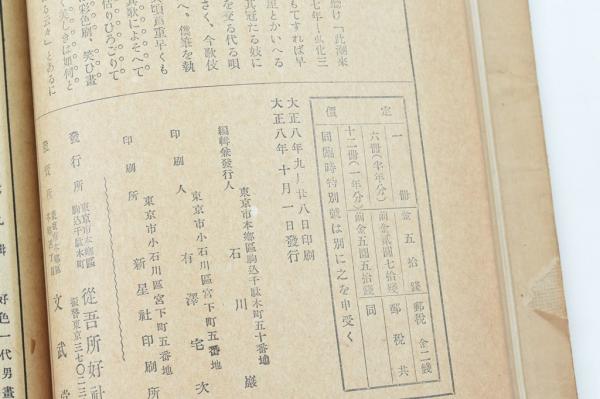 聴け「其潮來
七年ー弘化三
もてすれば早
重とかいへる
其冠たる妓に
を受る代る唄
さく、今歌伎
へ、僕筆を執
頃葛重早くも
其歌によそへて
估りひろごりて
彩色刷、笑ひ畫
美しきは如何と
云々」とあるに
定價
一冊 金五拾錢 郵税金二錢
六冊(半年分) 前金貳圓七拾錢 郵税共
十二冊(一年分) 前金五圓五拾錢 同
回臨時特別號は別に之を申受く
大正八年九月廿八日印刷
大正八年十月一日發行
編輯兼發行人 東京市本郷區駒込千駄木町五十番地 石川巖
印刷人 東京市小石川區宮下町五番地 有澤宅次
印刷所 東京市小石川區宮下町五番地 新星社印刷所
發行所 東京市本郷區駒込千駄木町 從吾所好社
振替東京三七〇二三
發賣所 文武堂
好色一代男畫